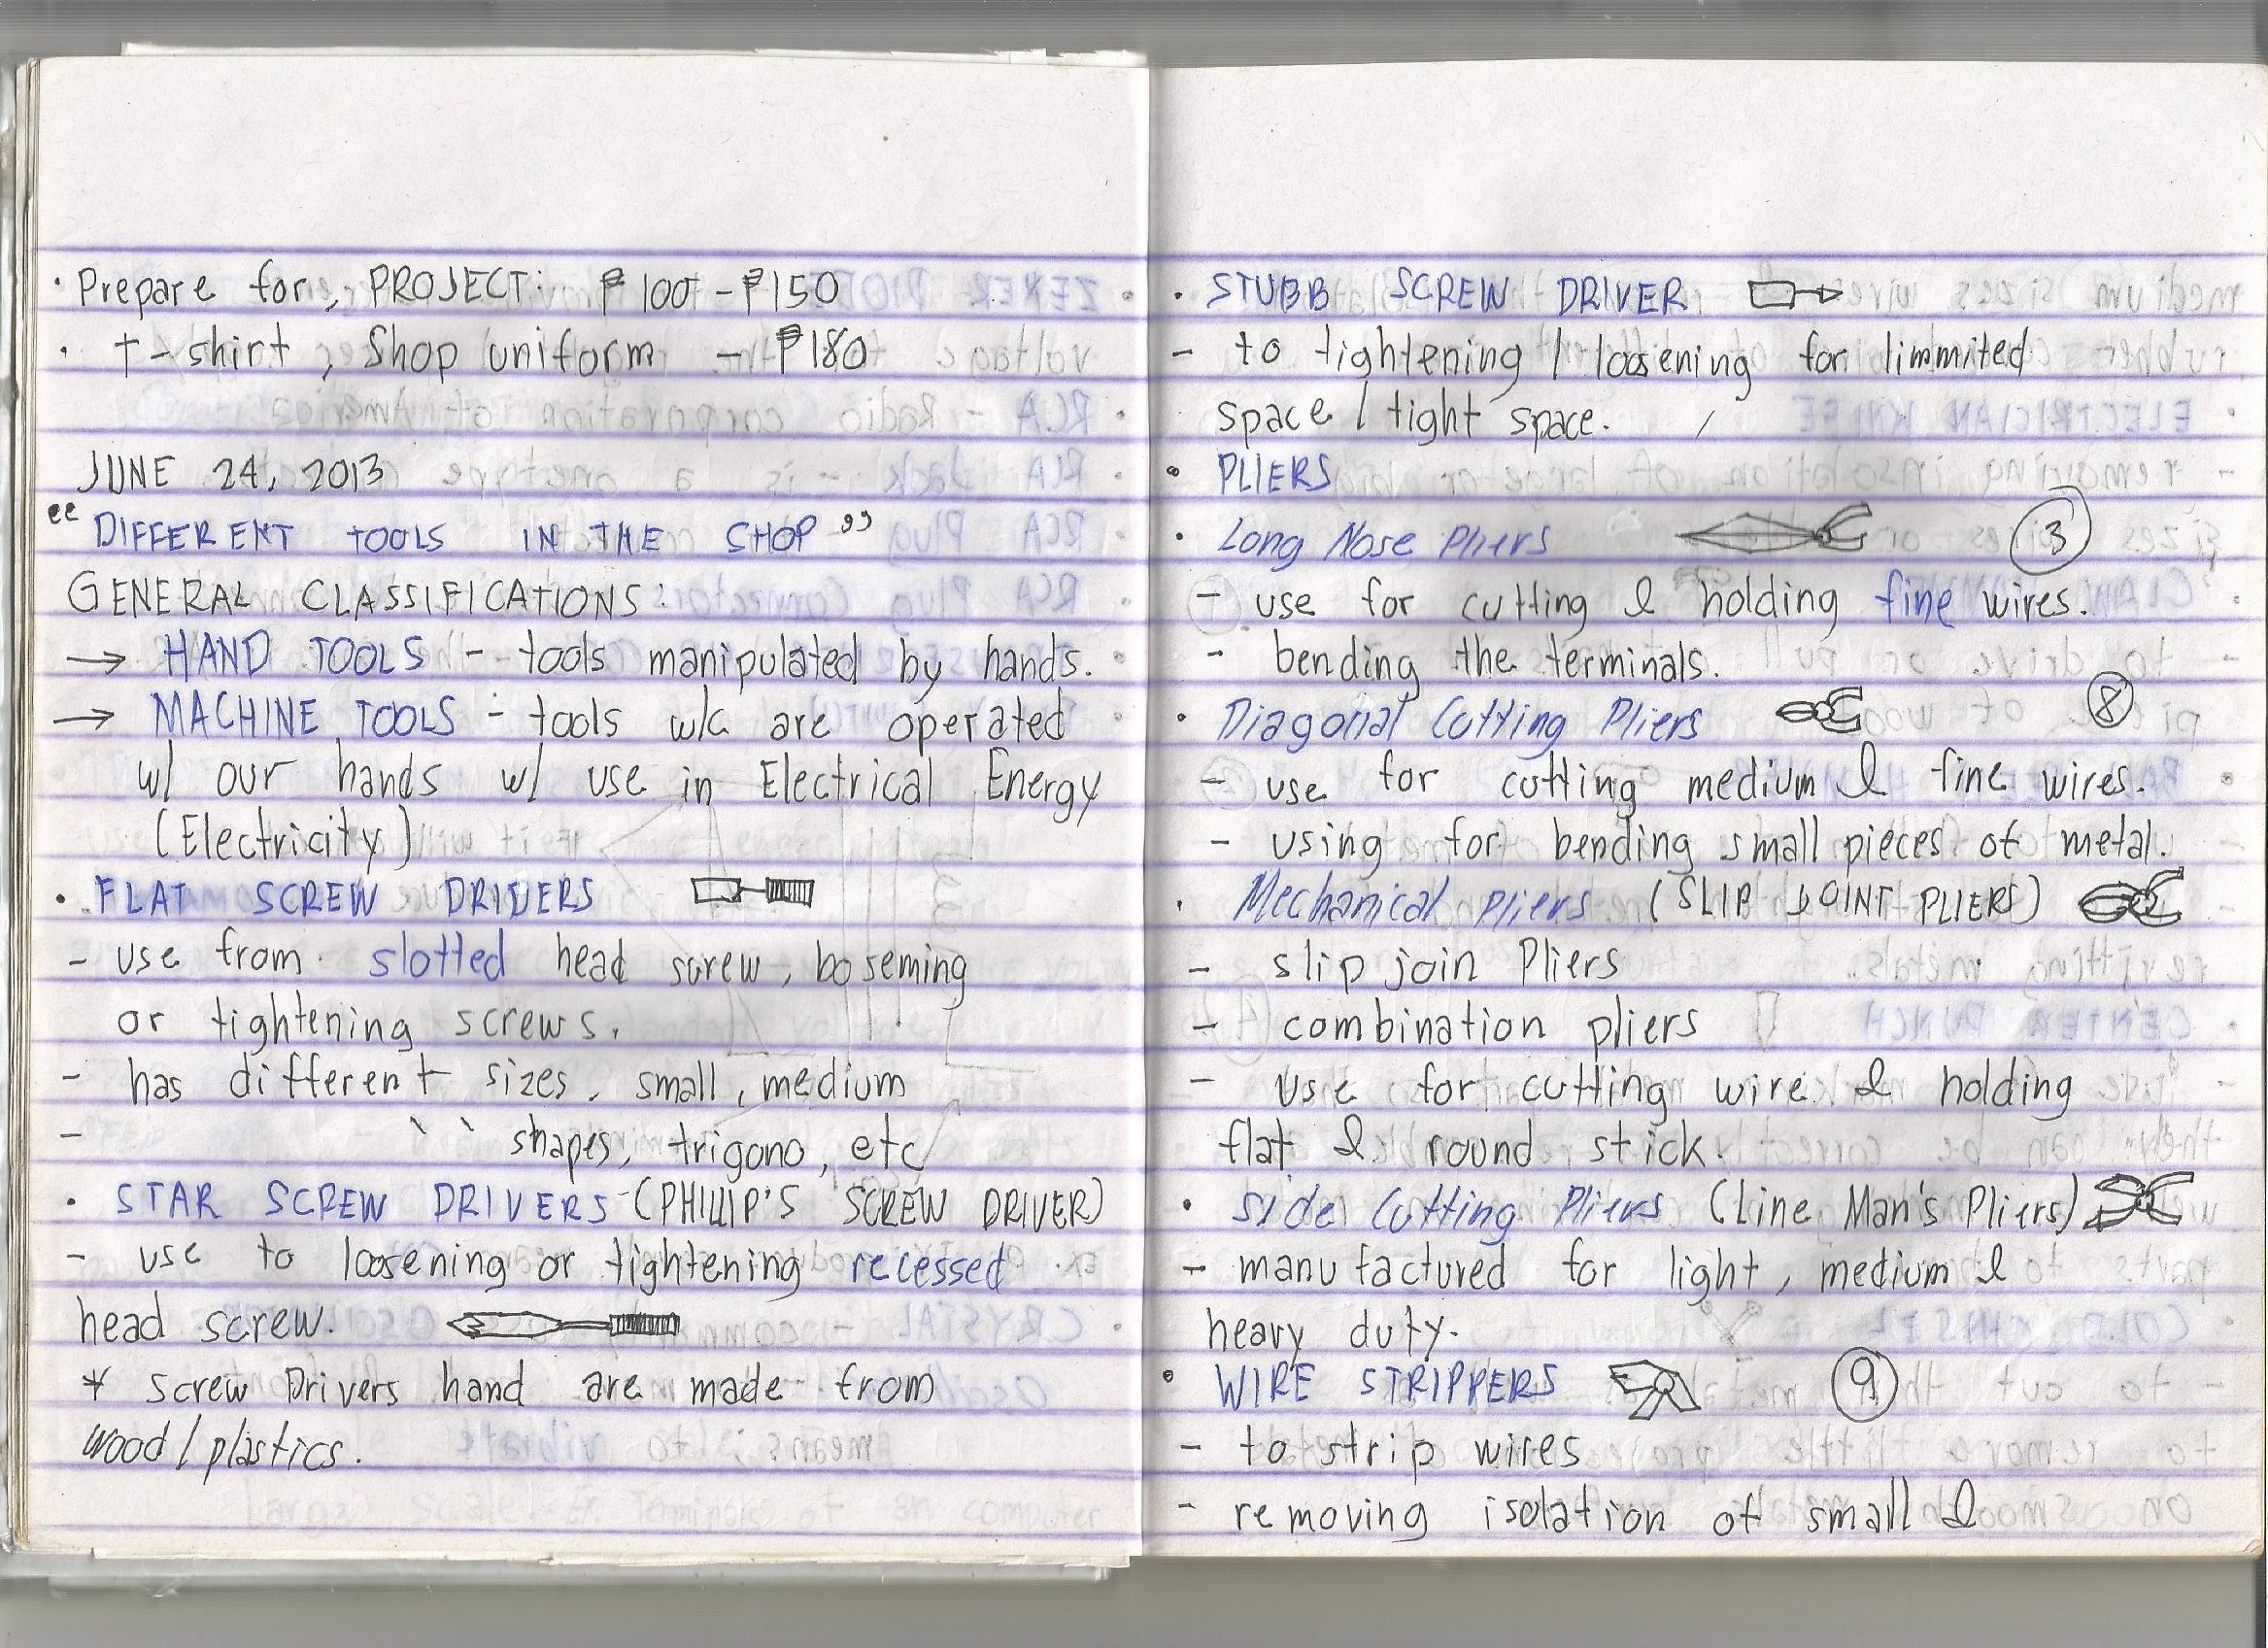 · Prepare for, PROJECT: ₱100 - ₱150
· T-shirt, Shop uniform - ₱180
JUNE 24, 2013
"DIFFERENT TOOLS IN THE SHOP"
GENERAL CLASSIFICATIONS:
→ HAND TOOLS - tools manipulated by hands.
→ MACHINE TOOLS - tools w/c are operated
w/ our hands w/ use in Electrical Energy
(Electricity)
· FLAT SCREW DRIVERS
- use from slotted head screw, looseming
or tightening screws.
- has different sizes, small, medium
- ` ` shapes, trigono, etc
· STAR SCREW DRIVERS - (PHILLIP'S SCREW DRIVER)
- use to loosening or tightening recessed
head screw.
* screw Drivers hand are made from
wood/plastics.
· STUBB SCREW DRIVER
- to tightening / loosening for limmited
space / tight space.
· PLIERS
· Long Nose Pliers ③
- use for cutting & holding fine wires.
- bending the terminals.
· Diagonal Cutting Pliers ⑧
- use for cutting medium & fine wires.
- using for bending small pieces of metal.
· Mechanical Pliers (SLIP JOINT PLIERS)
- slip join Pliers
- combination pliers
- use for cutting wire & holding
flat & round stick.
· Side Cutting Pliers (Line Man's Pliers)
- manufactured for light, medium &
heavy duty.
· WIRE STRIPPERS ⑨
- to strip wires
- removing isolation of small &